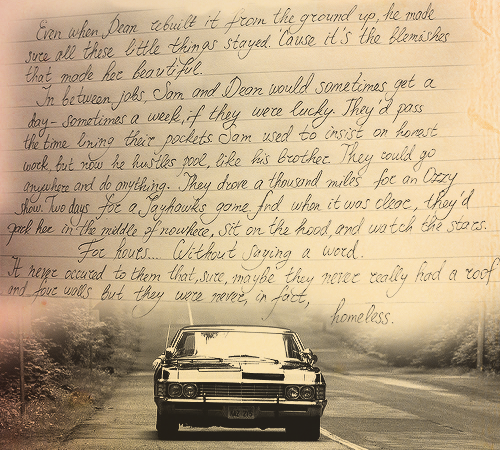 Even when Dean rebuilt it from the ground up, he made
sure all these little things stayed. 'Cause it's the blemishes
that made her beautiful.
In between jobs, Sam and Dean would sometimes get a
day - sometimes a week, if they were lucky. They'd pass
the time lining their pockets Sam used to insist on honest
work, but now he hustles pool, like his brother. They could go
anywhere and do anything. They drove a thousand miles for an Ozzy
show. Two days for a Jayhawks game And when it was clear, they'd
park her in the middle of nowhere, sit on the hood, and watch the stars.
For hours... Without saying a word.
It never occured to them that, sure, maybe they never really had a roof
and four walls but they were never, in fact,
homeless.